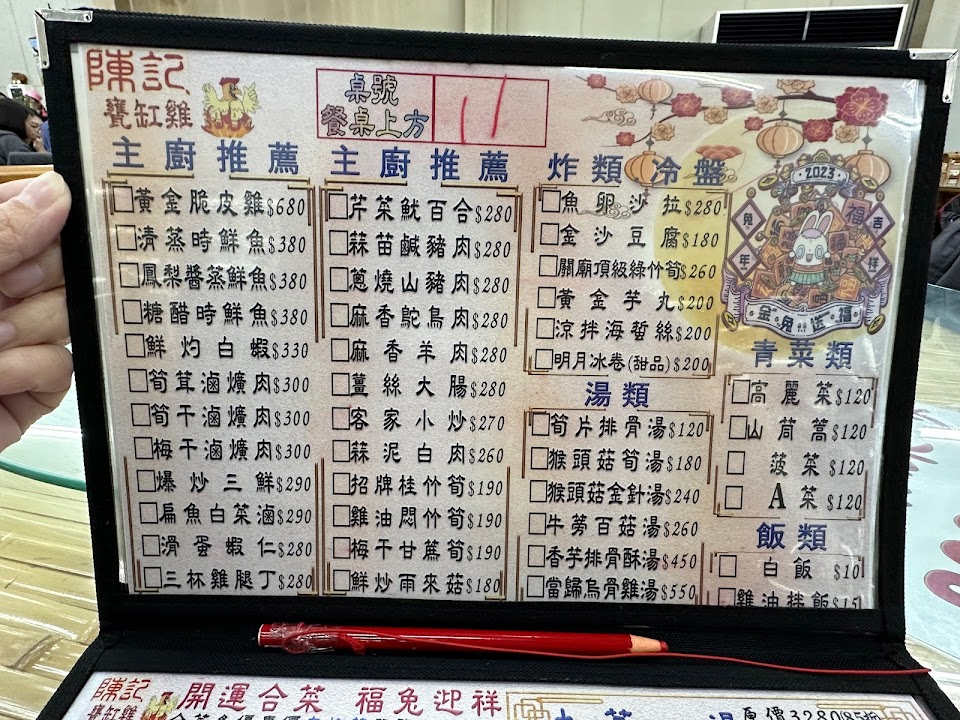 陳記
甕缸雞
桌號
餐桌上方
11
主廚推薦
□黃金脆皮雞$680
□清蒸時鮮魚$380
□鳳梨醬蒸鮮魚$380
□糖醋時鮮魚$380
□鮮灼白蝦$330
□筍茸滷爌肉$300
□筍干滷爌肉$300
□梅干滷爌肉$300
□爆炒三鮮$290
□扁魚白菜滷$290
□滑蛋蝦仁$280
□三杯雞腿丁$280
主廚推薦
□芹菜魷百合$280
□蒜苗鹹豬肉$280
□蔥燒山豬肉$280
□麻香鴕鳥肉$280
□麻香羊肉$280
□薑絲大腸$280
□客家小炒$270
□蒜泥白肉$260
□招牌桂竹筍$190
□雞油悶竹筍$190
□梅干甘蔗筍$190
□鮮炒雨來菇$180
炸類 冷盤
□魚卵沙拉$280
□金沙豆腐$180
□關廟頂級綠竹筍$260
□黃金芋丸$200
□涼拌海蜇絲$200
□明月冰卷(甜品)$200
湯類
□筍片排骨湯$120
□猴頭菇筍湯$180
□猴頭菇金針湯$240
□牛蒡百菇湯$260
□香芋排骨酥湯$450
□當歸烏骨雞湯$550
2023
兔年
吉祥
福
金兔送福
青菜類
□高麗菜$120
□山茼蒿$120
□菠菜$120
□A菜$120
飯類
□白飯$10
□雞油拌飯$15
陳記
甕缸雞
開運合菜 福兔迎祥
原價3280(85折